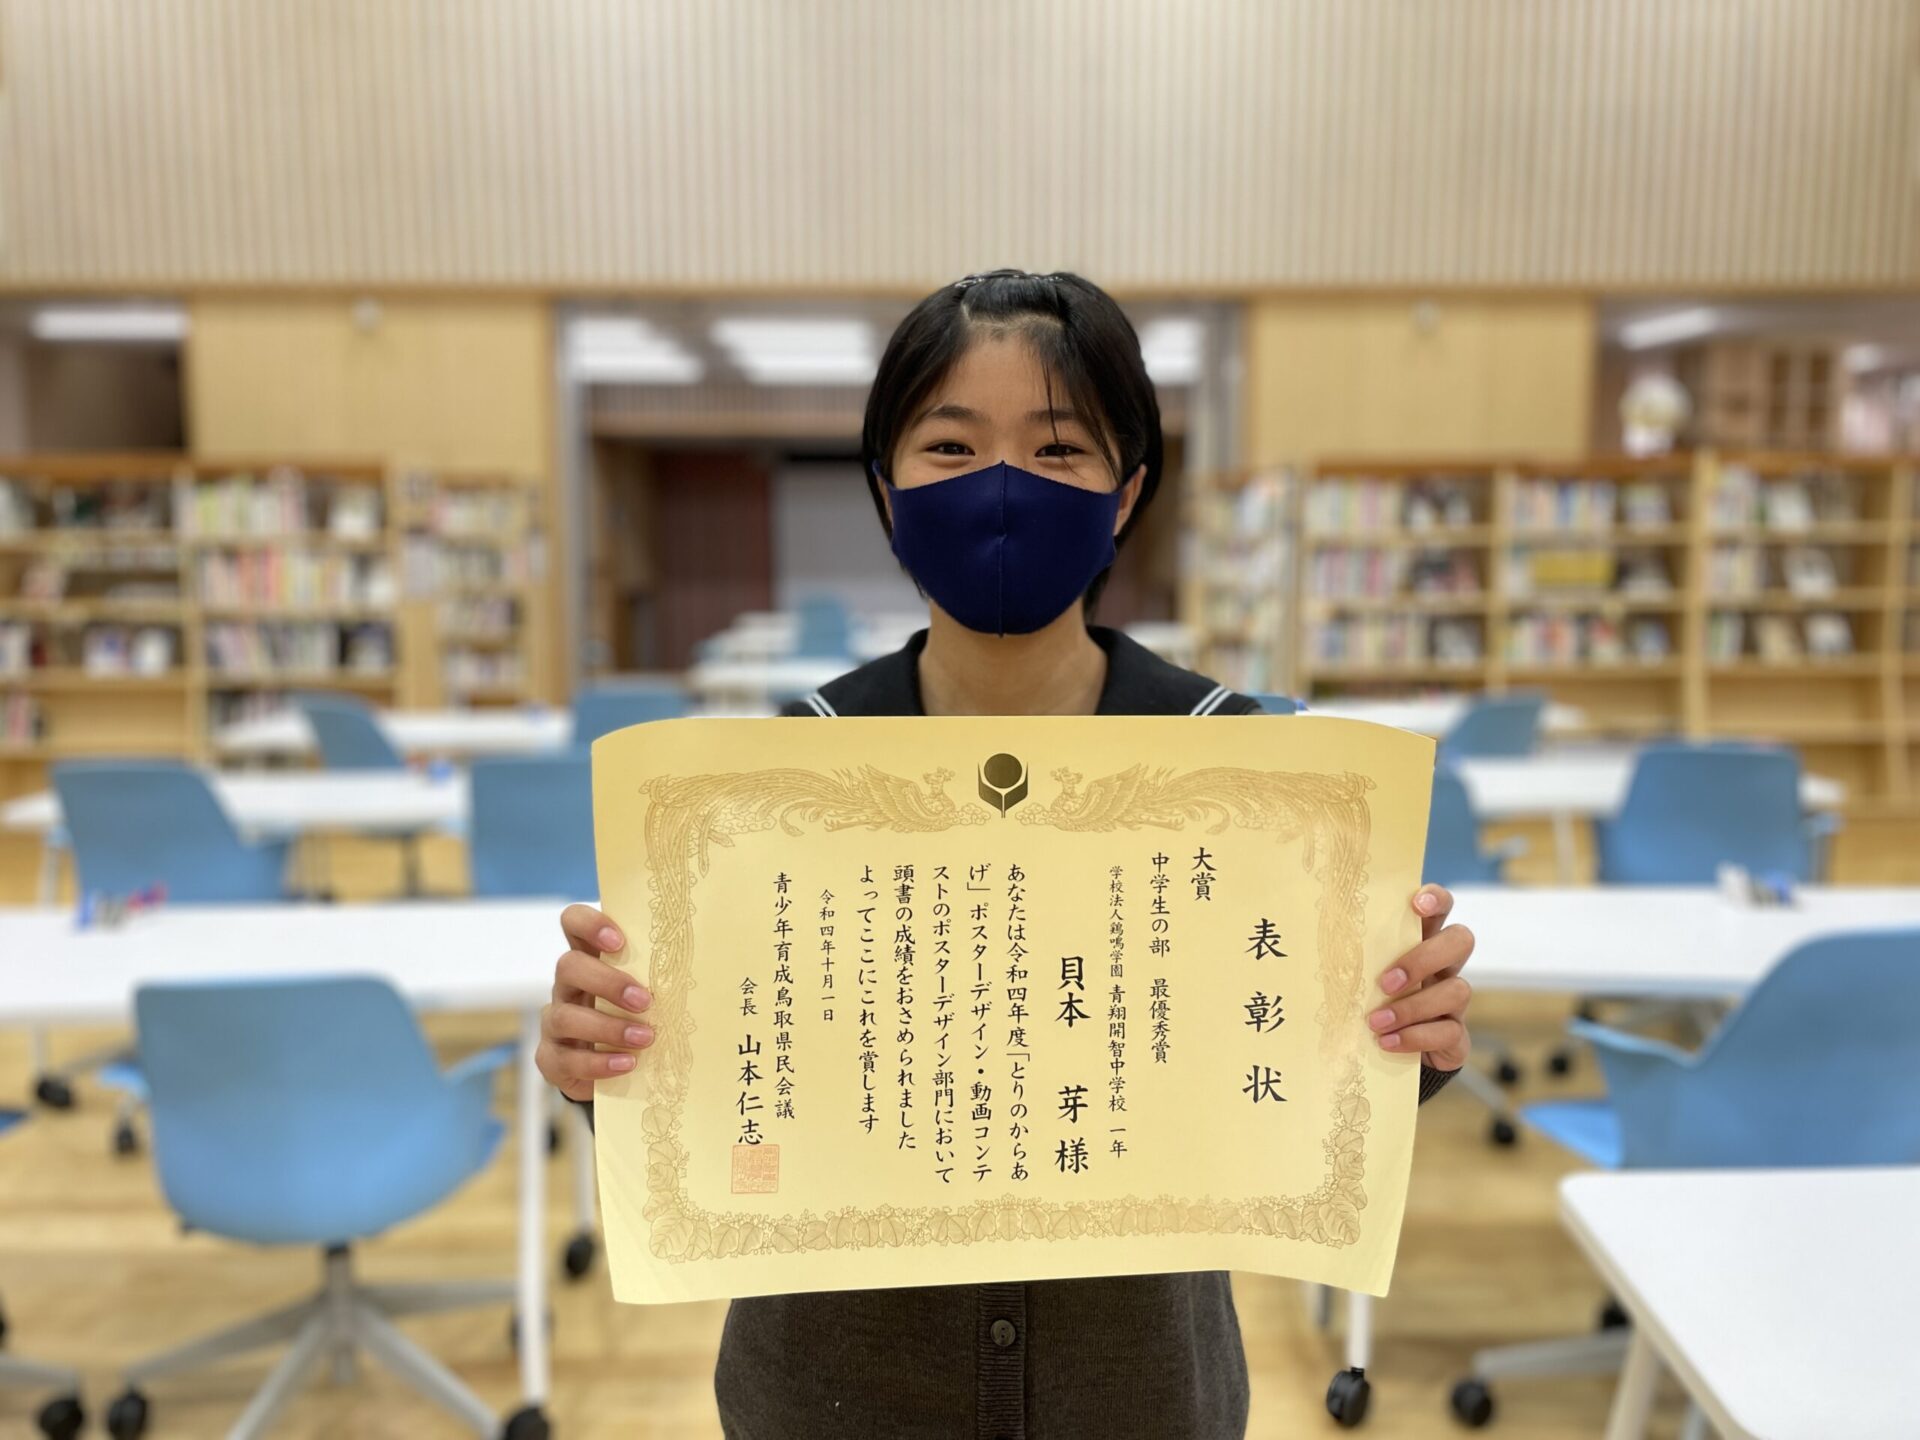 表彰状
大賞
中学生の部　最優秀賞
学校法人鶏鳴学園 青翔開智中学校　一年
貝本　芽 様
あなたは令和四年度「「とりのからあ
げ」ポスターデザイン・動画コンテ
ストのポスターデザイン部門において
頭書の成績をおさめられました
よってここにこれを賞します
令和四年十月一日
青少年育成鳥取県民会議
会長　山本仁志